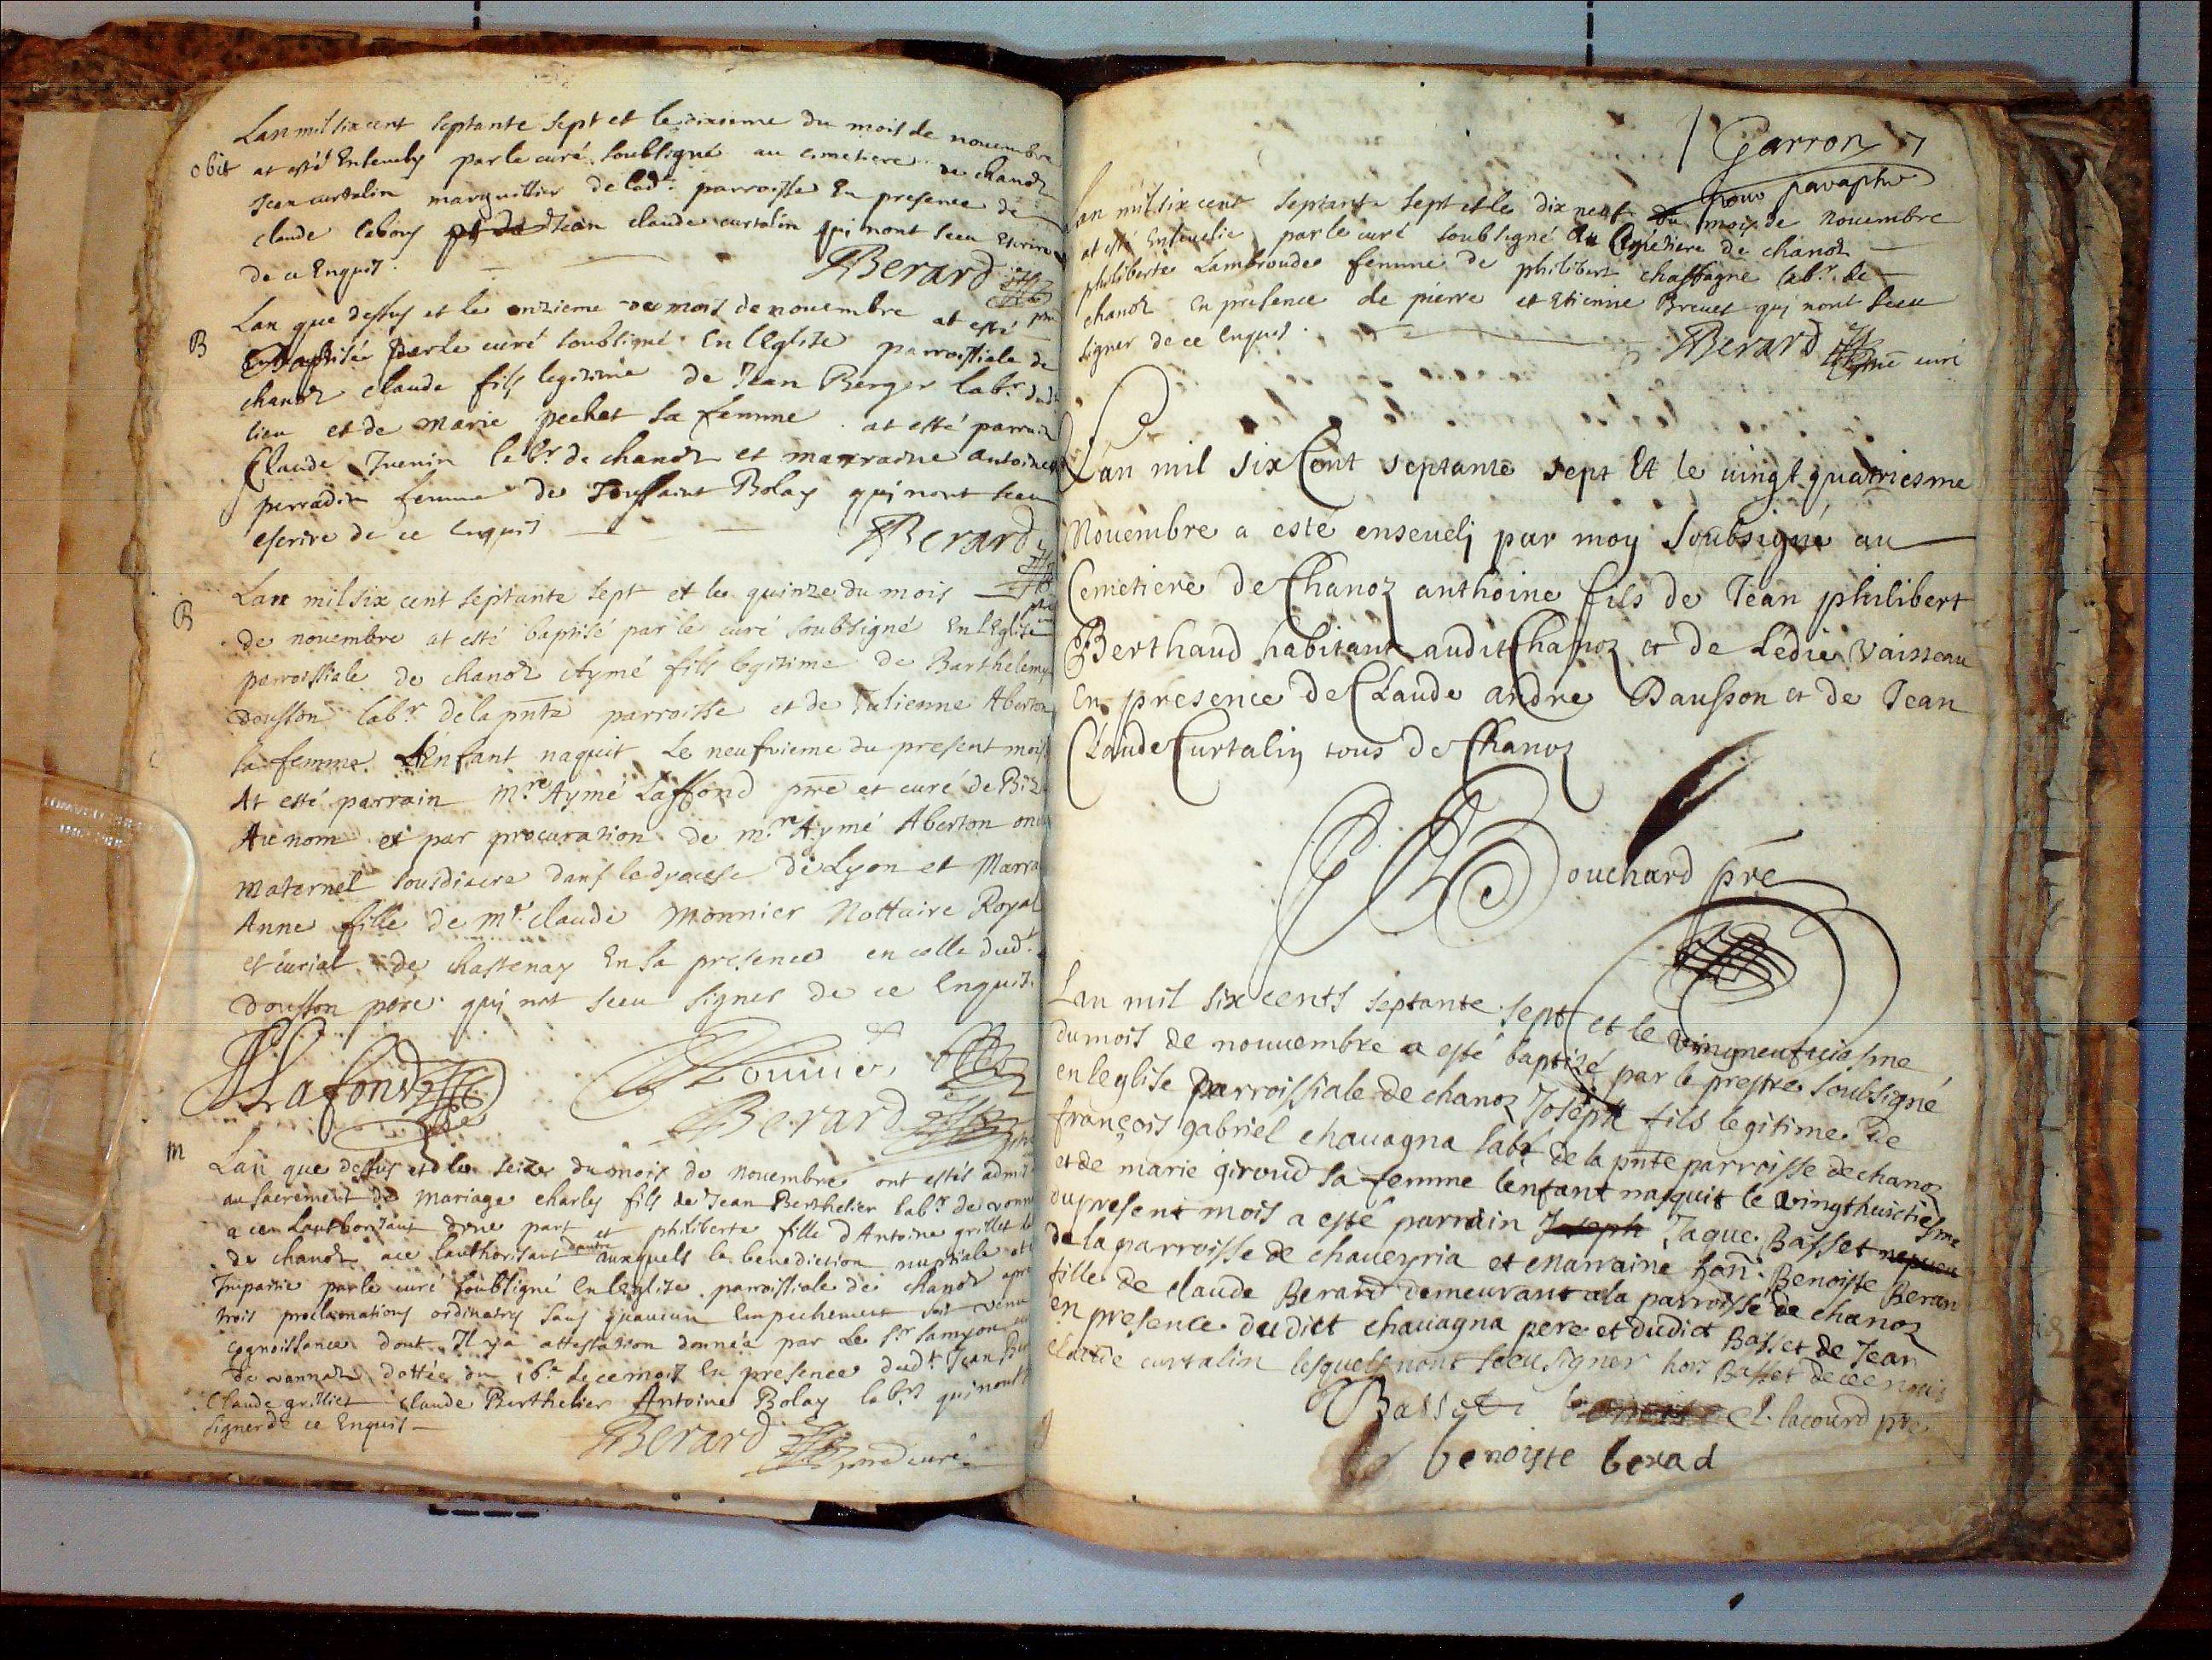 Lan mil six cent septante sept et le dixieme du mois de novembre
obit at esté Ensevely par le curé soubsigné au cimetiere de chanoz
Jean curtalin marguillier de lad. parroisse En presence de
claude labous Jean claude curtalin qui nont sceu Escrire
de ce Enquis.
Berard
Lan que dessus et le onzieme de mois de novembre at esté
B Baptisée par le curé soubsigné En lEglise parroissiale de
chanoz claude fils legitime de Jean Berger labr. dud.
lieu et de Marie pechet sa femme. at esté parrain
Claude Juenin labr. de chanoz et marraine antoinet
perradin femme de Toussaint Bolay qui nont sceu
escrire de ce Enquis
Berard
Lan mil six cent septante sept et le quinze du mois
B de novembre at esté baptisé par le curé soubsigné En lEglise
parroissiale de chanoz Aymé fils legitime de Barthelemy
Dousson labr. de la pnte parroisse et de Julienne Aberton
sa femme. LEnfant naquit le neufvieme du present mois
At esté parrain Mre Aymé Laffond pre et curé de Biz
Au nom et par procuration de mre Aymé Aberton oncle
maternel soudiacre dans le dyocese de Lyon et Marra
Anne fille de Me claude Monnier Nottaire Royal
et curial de chastenay En sa presence en celle dud.
Dousson pere qui nat sceu signer de ce Enquis.
Lafond Monnier
Berard
M Lan que dessus et le seize du mois de novembre ont estés admis
au sacrement de Mariage charles fils de Jean Berthelier labr. de vonna
a ce lauthorisant dune part et philiberte fille dAntoine grillet
de chanoz ace lauthorisant dautre auxquels la benediction nuptiale at
Impartie par le curé soubsigné En lEglise parroissiale de chanoz apre
trois proclamations ordinaires sans quaucun Empechement soit venu
cognoissance dont Il y a attestation donnée par Le Sr. Lamyon
de vonnaz dattée du 16e de ce mois En presence dud. Jean Ber
Claude grilliet claude Berthelier Antoine Bolay labrs qui nont
signer de ce Enquis
Berard pre curé
Garron
pour paraphe
Lan mil six cent septante sept et le dix neuf du mois de Novembre
at esté Ensevelie par le curé soubsigné Au Cemetiere de chanoz
philiberte Lambroude femme de philibert chassagne labr. de
chanoz En presence de pierre et Etienne Brevet qui nont sceu
signer de ce Enquis.
Berard pre curé
Lan mil six Cent septante sept Et le vingt quatriesme
Novembre a esté enseveli par moy soubsigné au
Cemetiere de Chanoz anthoine fils de Jean philibert
Berthaud habitant audit Chanoz et de Ledie Vaisseau
En presence de Claude andre Dausson et de Jean
Claude Curtalin tous de Chanoz
Bouchard pre
Lan mil six cents septante sept et le vingneufviesme
du mois de nouvembre a esté baptizé par le prestre soubsigné
en leglise parroissiale de chanoz Joseph fils legitime de
françois gabriel chavagna labr. de la pnte parroisse de chanoz
et de marie giroud sa femme lenfant nasquit le vingthuictiesme
du present mois a esté parrain Joseph Jaque Basset nepveu
de la parroisse de chaveyria et Marraine hon. Benoiste Beran
fille de claude Berard demeurant a la parroisse de chanoz
en presence dudict chavagna pere et dudict Basset de Jean
claude curtalin lesquels nont sceu signer hors Basset de ce enquis
Basset C. lacourd pre
benoiste berad